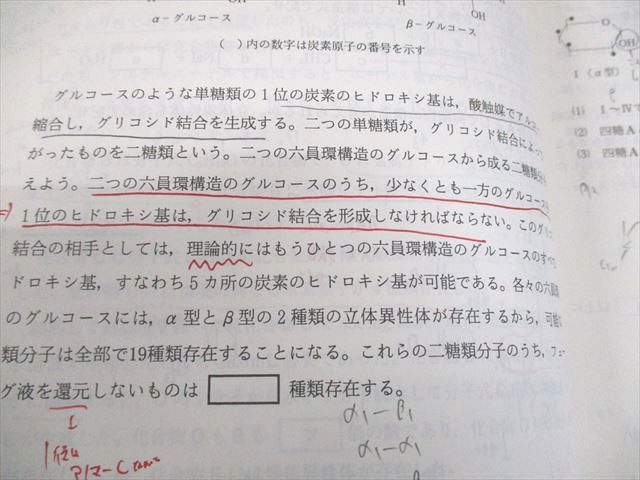 OH
OH
α-グルコース
β-グルコース
( )内の数字は炭素原子の番号を示す
グルコースのような単糖類の1位の炭素のヒドロキシ基は,酸触媒でアルコ
縮合し,グリコシド結合を生成する。二つの単糖類が,グリコシド結合によって
がったものを二糖類という。二つの六員環構造のグルコースから成る二糖類
えよう。二つの六員環構造のグルコースのうち,少なくとも一方のグルコース
1位のヒドロキシ基は,グリコシド結合を形成しなければならない。このグリコ
結合の相手としては,理論的にはもうひとつの六員環構造のグルコースのすべ
ドロキシ基,すなわち5カ所の炭素のヒドロキシ基が可能である。各々の六員
のグルコースには,α型とβ型の2種類の立体異性体が存在するから,可能
類分子は全部で19種類存在することになる。これらの二糖類分子のうち,フェー
グ液を還元しないものは 種類存在する。
α1-β1
α1-α1
1位
O
OH
1 (α型)
(1) 1~Ⅳ
(2) 四糖A
(3) 四糖A